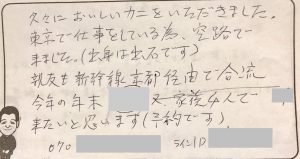 久々においしいカニをいただきました。
東京で仕事をしている為、空路で
来ました。(出身は出石です)
親友も新幹線京都経由で合流
今年の年末 又家族4人で
来たいと思います(予約です)
070 ラインID